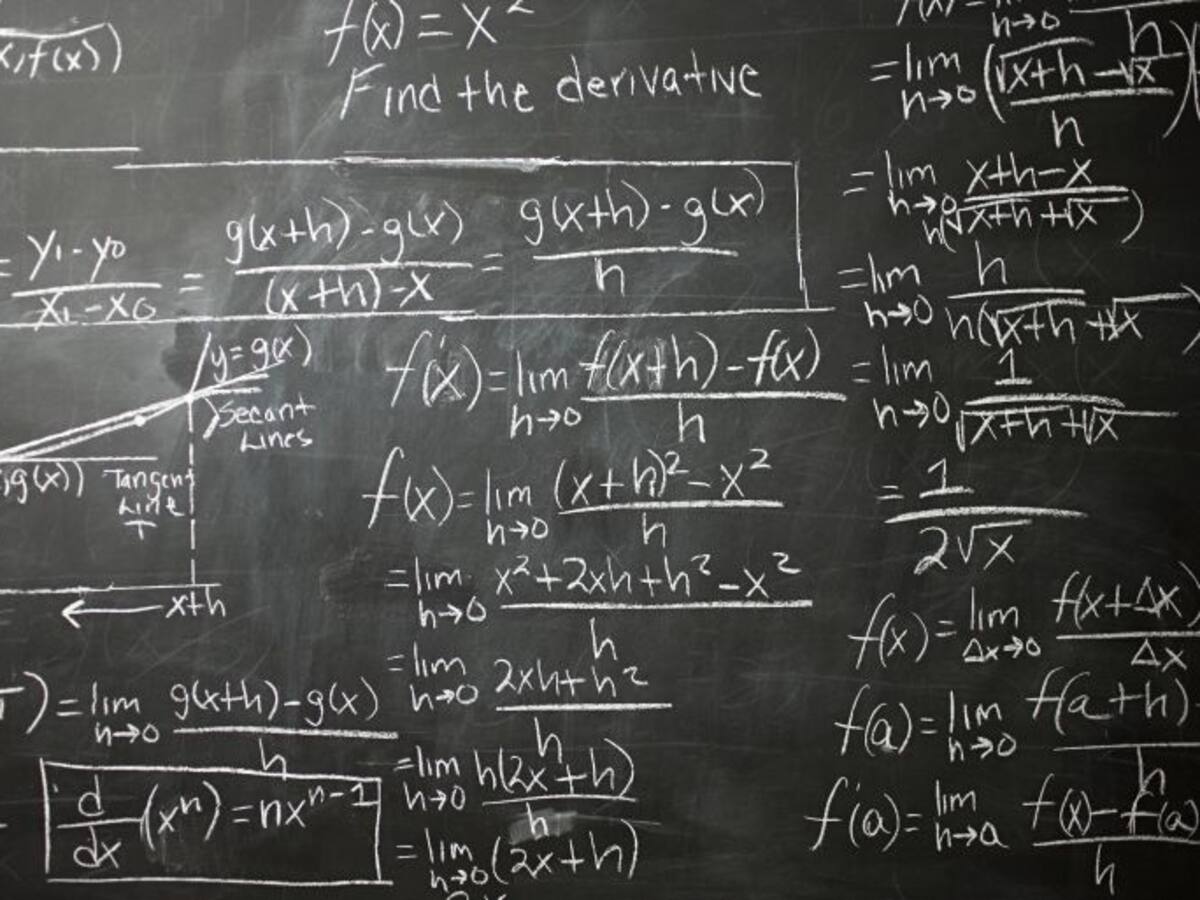 x, f(x))
f(x) = x²
Find the derivative
= (y₁ - y₀)/(x₁ - x₀) = (g(x+h) - g(x))/((x+h) - x) = (g(x+h) - g(x))/h
y = g(x)
Secant
Lines
, g(x))
Tangent
Line
T
← x+h
) = lim h→0 (g(x+h) - g(x))/h
d/dx (xⁿ) = nxⁿ⁻¹
f'(x) = lim h→0 (f(x+h) - f(x))/h
f(x) = lim h→0 ((x+h)² - x²)/h
= lim h→0 (x² + 2xh + h² - x²)/h
= lim h→0 (2xh + h²)/h
= lim h→0 h(2x + h)/h
= lim h→0 (2x + h)
h→0 h
= lim h→0 ((√x+h - √x)/h)(
= lim h→0 (x+h-x)/(h(√x+h + √x))
= lim h→0 h/(h(√x+h + √x)
= lim h→0 1/(√x+h + √x)
= 1/(2√x)
f(x) = lim Δx→0 f(x+Δx)/Δx
f(a) = lim h→0 f(a+h)/h
f'(a) = lim h→a (f(x) - f(a))/h